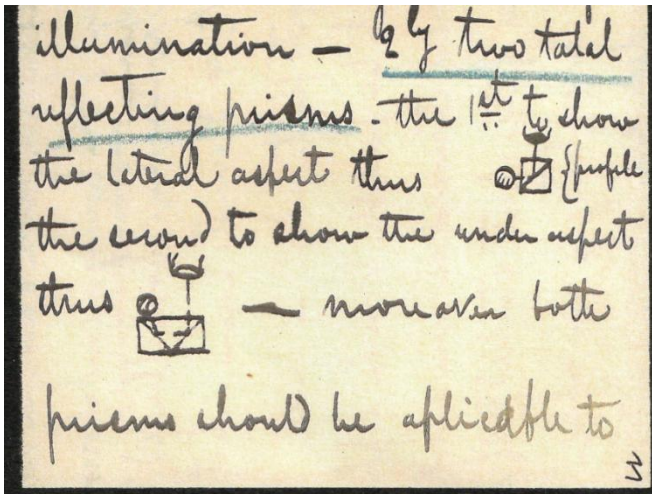 illumination — 2ly two total
reflecting prisms. the 1st to show
the lateral aspect thus {profile
the second to show the under aspect
thus — moreover both
prisms should be aplicable to